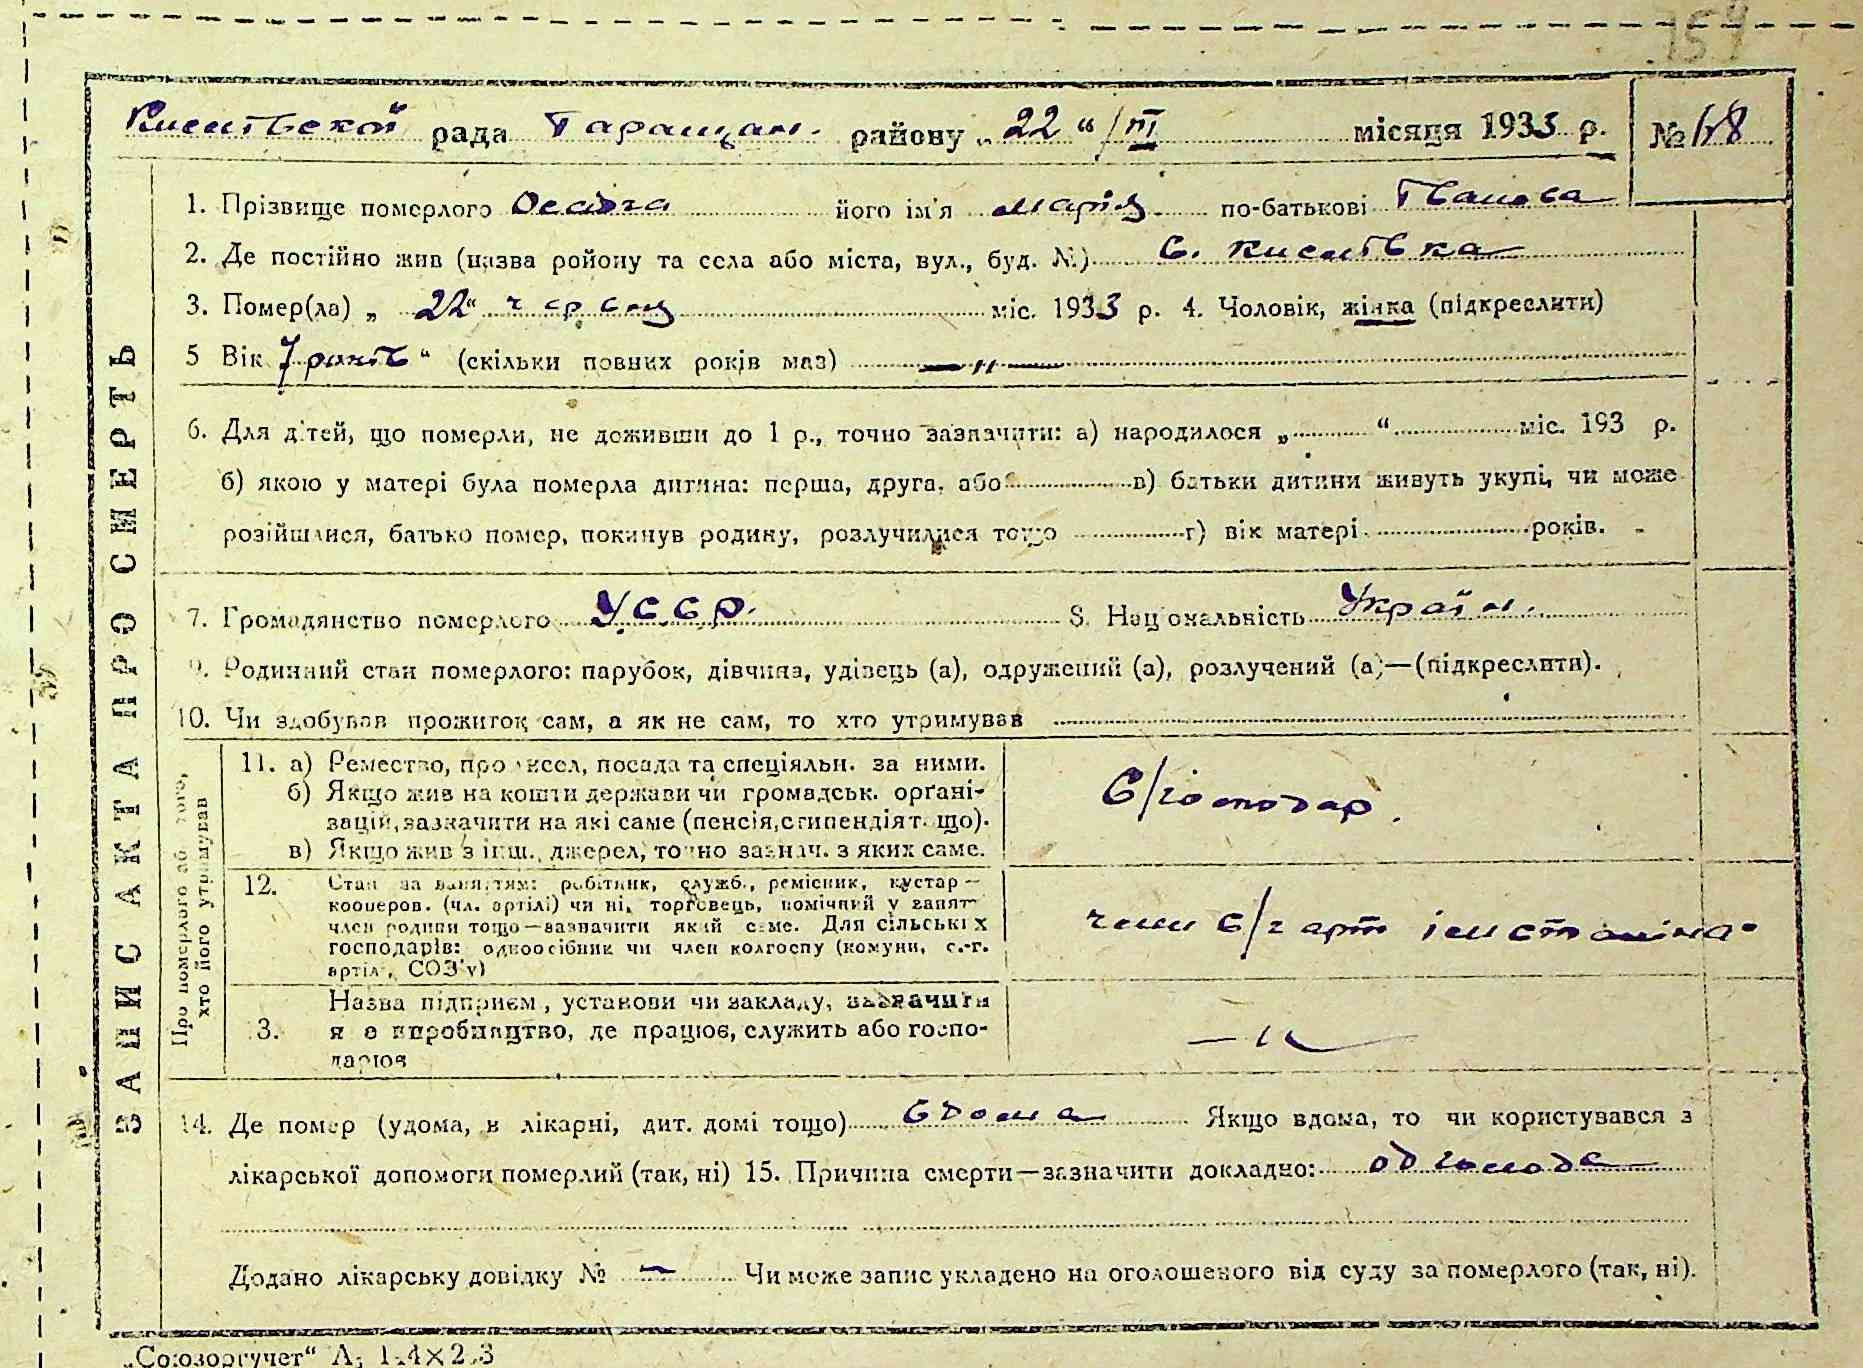 154
Кислівской рада Таращан. району „22“ /III місяця 1933 р. №
1. Прізвище померлого його ім'я Марія по-батькові Іванова
2. Де постійно жив (назва ройону та села або міста, вул., буд. №) С. Кислівка
3. Помер(ла) „22“ червня міс. 1933 р. 4. Чоловік, жінка (підкреслити)
5 Вік 7 років“ (скільки повних років маз) — „ —
6. Для дітей, що померли, не доживши до 1 р., точно зазначити: а) народилося „ “ міс. 193 р.
б) якою у матері була померла дитина: перша, друга, або в) батьки дитини живуть укупі, чи може
розійшлися, батько помер, покинув родину, розлучилися тощо г) вік матері років.
7. Громадянство померлого УССР. 8. Національність Україн.
9. Родинний стан померлого: парубок, дівчина, удівець (а), одружений (а), розлучений (а)—(підкреслити).
10. Чи здобував прожиток сам, а як не сам, то хто утримував
ЗАПИС АКТА ПРО СМЕРТЬ
Про померлого або того, хто його утримував
11. а) Ремество, промисел, посада та спеціяльн. за ними.
б) Якщо жив на кошти держави чи громадськ. орґані-
зацій, зазначити на які саме (пенсія, стипендіят. що).
в) Якщо жив з інш. джерел, точно зазнач. з яких саме.
С/господар.
12. Стан за заняттям: робітник, служб., ремісник, кустар—
кооперов. (чл. артілі) чи ні, торговець, помічний у занят
член родини тощо—зазначити який саме. Для сільських
господарів: одноосібник чи член колгоспу (комуни, с.-г.
артілі, СОЗ'у)
член С/г арт ім Сталіна
13. Назва підприєм, установи чи закладу, зазначити
яке виробництво, де працює, служить або госпо-
дарює
— „ —
14. Де помер (удома, в лікарні, дит. домі тощо) вдома Якщо вдома, то чи користувався з
лікарської допомоги померлий (так, ні) 15. Причина смерти—зазначити докладно: од голода
Додано лікарську довідку № — Чи може запис укладено на оголошеного від суду за померлого (так, ні).
„Союзоргучет“